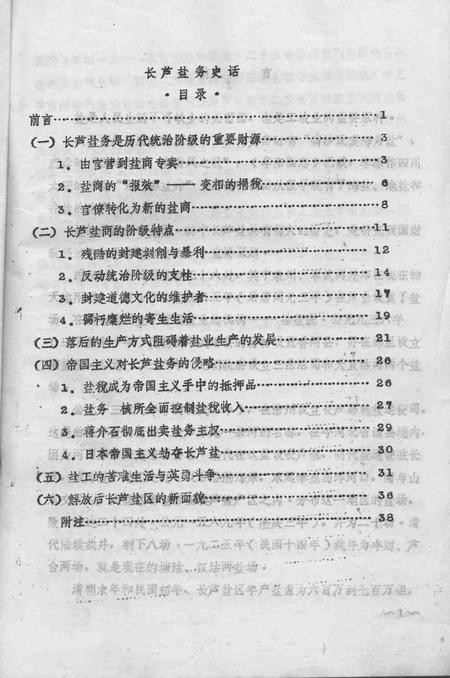 长芦盐务史话
·目录·
前言……1
(一)长芦盐务是历代统治阶级的重要财源……3
1。由官营到盐商专卖……3
2。盐商的“报效”——变相的捐税……6
3。官僚转化为新的盐商……8
(二)长芦盐商的阶级特点……11
1。残酷的封建剥削与暴利……12
2。反动统治阶级的支柱……14
3。封建道德文化的维护者……17
4。腐朽糜烂的寄生生活……19
(三)落后的生产方式阻碍着盐业生产的发展……21
(四)帝国主义对长芦盐务的侵略……26
1。盐税成为帝国主义手中的抵押品……26
2。盐务 核所全面控制盐税收入……27
3。蒋介石彻底出卖盐务主权……29
4。日本帝国主义劫夺长芦盐……30
(五)盐工的苦难生活与英勇斗争……31
(六)解放后长芦盐区的新面貌……36
附注……38
代陆续裁并,剩下八场。一九二五年(民国十四年)裁并为丰财、芦
台两场,就是现在的塘沽、汉沽两盐场。
清朝末年和民国初年,长芦盐区年产盐量为六百万到七百万担,
～1～